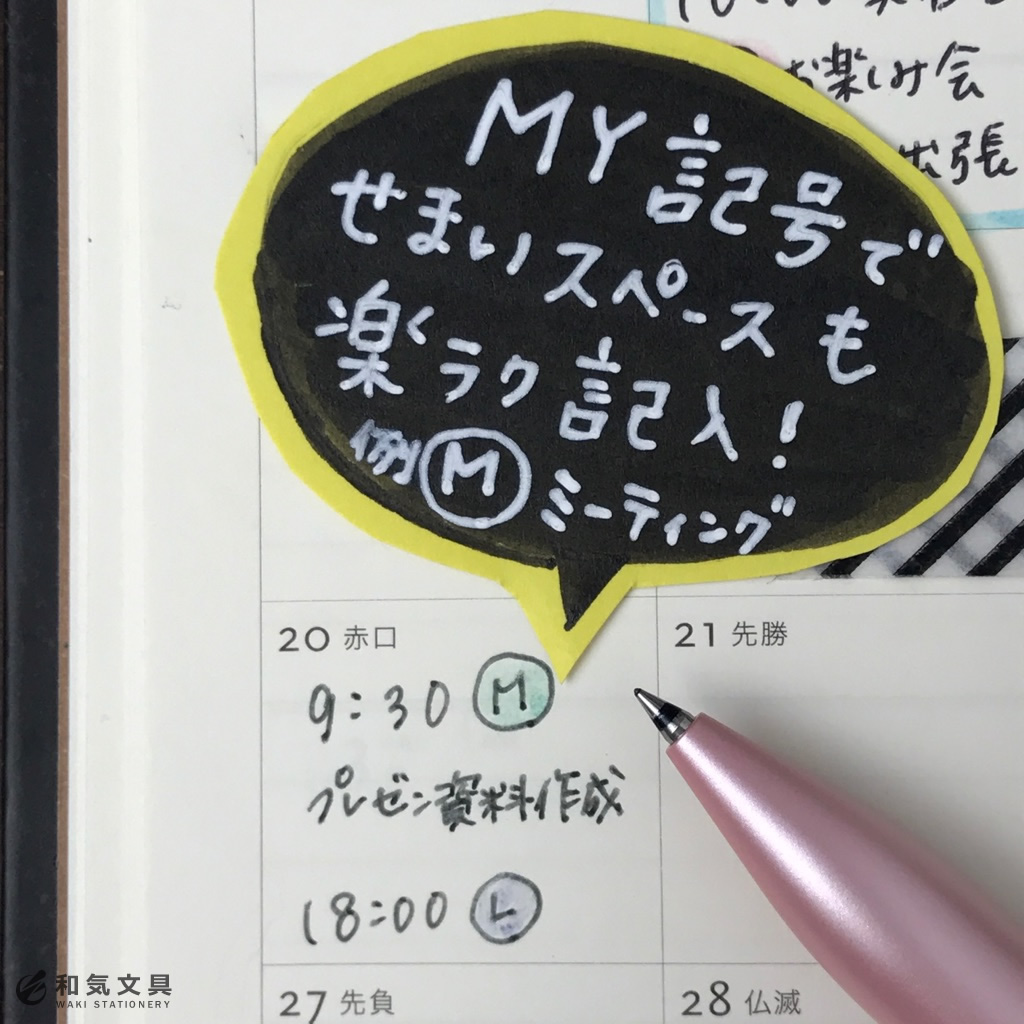 お楽しみ会
出張
MY記号で
せまいスペースも
楽々ラク記入！
例 Ⓜ ミーティング
20 赤口
21 先勝
9:30 Ⓜ
プレゼン資料作成
18:00 Ⓛ
27 先負
28 仏滅
和気文具
WAKI STATIONERY